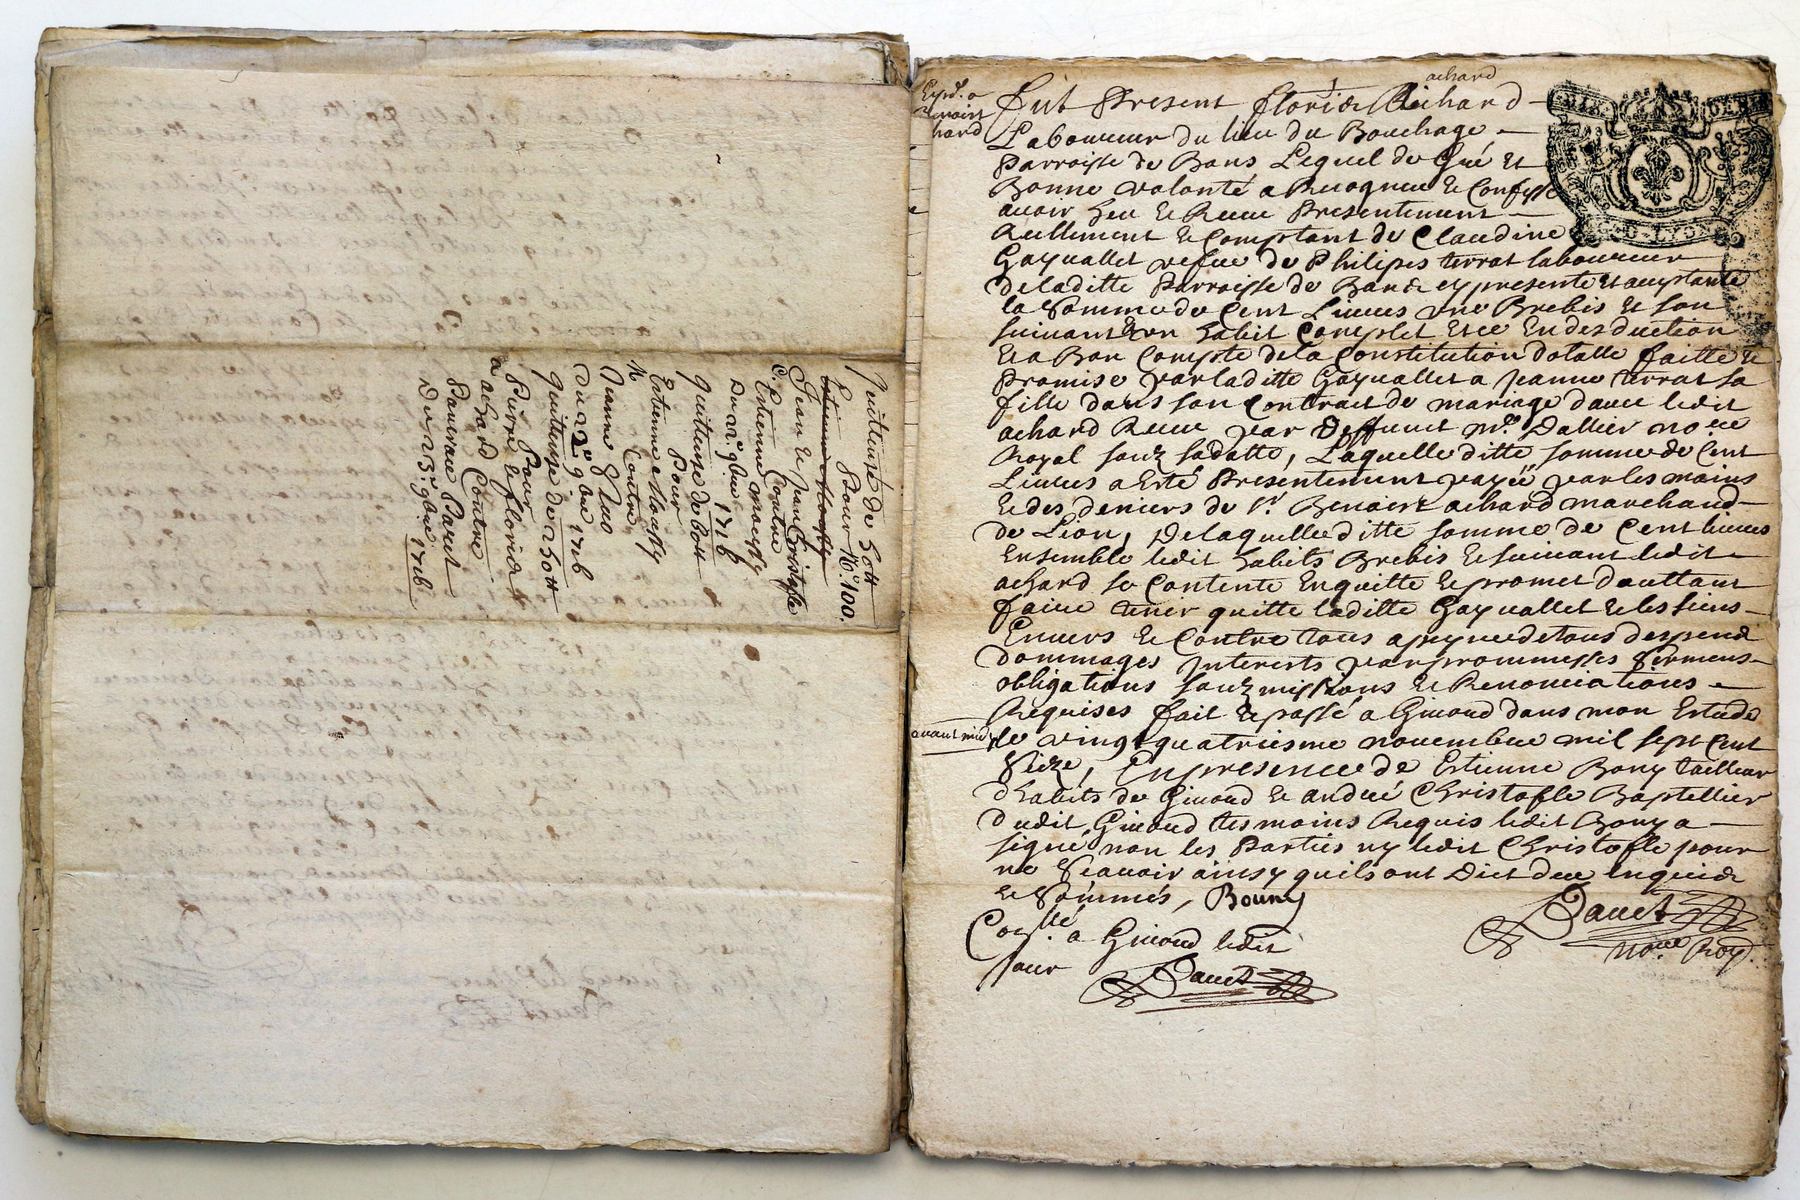 Quittense de 50tt
Pour No. 100.
Estienne Moussy
Jean & Jean Cristofle
C. Estienne mousssy Contre
Du 22e 9bre 1716
Quittense de 60tt
Pour
Estienne Mousssy
Contre
Jeanne
Du 22e 9bre 1716
Quittense de 250tt
Pour
Pierre & floride
achard Contre
Du 23e 9bre 1716
Exped. a
Benoist
hard
achard
fut Present floride Richard
Laboureur du lieu du Bouchage
Parroisse de Bans Lequel de Gré Et
Bonne volonté a Recogneu & Confesse
avoir heu & Receu Presentement
Reellement & Comptant de Claudine
Gayuallet vefue de Philipes terrat laboureur
deladitte Parroisse de Bans cy presente et aceptante
la Somme de Cent Liures une Brebis & son
suiuant & un habit Complet Et ce En desduction
Et a Bon Compte de la Constitution dotalle faitte &
Promise par laditte Gayuallet a Jeanne terrat sa
fille dans son Contrait de mariage dauec ledit
achard Receu par deffunct Me. Dallier noere
Royal souz sadatte, Laquelle ditte somme de Cent
Liures a Esté Presentement payée par les mains
& des deniers de Sr. Benoist achard marchand
de Lion, De laquelle ditte somme de Cent liures
Ensemble ledit habits Brebis & suiuant ledit
achard se Contente Enquitte & promet dauttant
faire tenir quitte laditte Gayuallet & les siens
Enuers & Contre tous a peyne de tous despend
dommages Interests par prommesses sermens
obligations souzmissions & Renonciations
Requises fait & passé a Giuord dans mon Estude
auant midy
le vingtquatriesme nouembre mil sept Cent
Seize, En presence de Estienne Bony tailleur
dhabits de Giuord & andré Christofle Baptellier
dudit Giuord tesmoins Requis ledit Bony a
signé non les Parties ny ledit Christofle pour
ne Sçauoir ainsy quils ont Dict deue enquis
& Sommés, Bouny
Coollé a Giuord ledit
Jour
noere Roy.
DIX DENIE
G. D. LYON